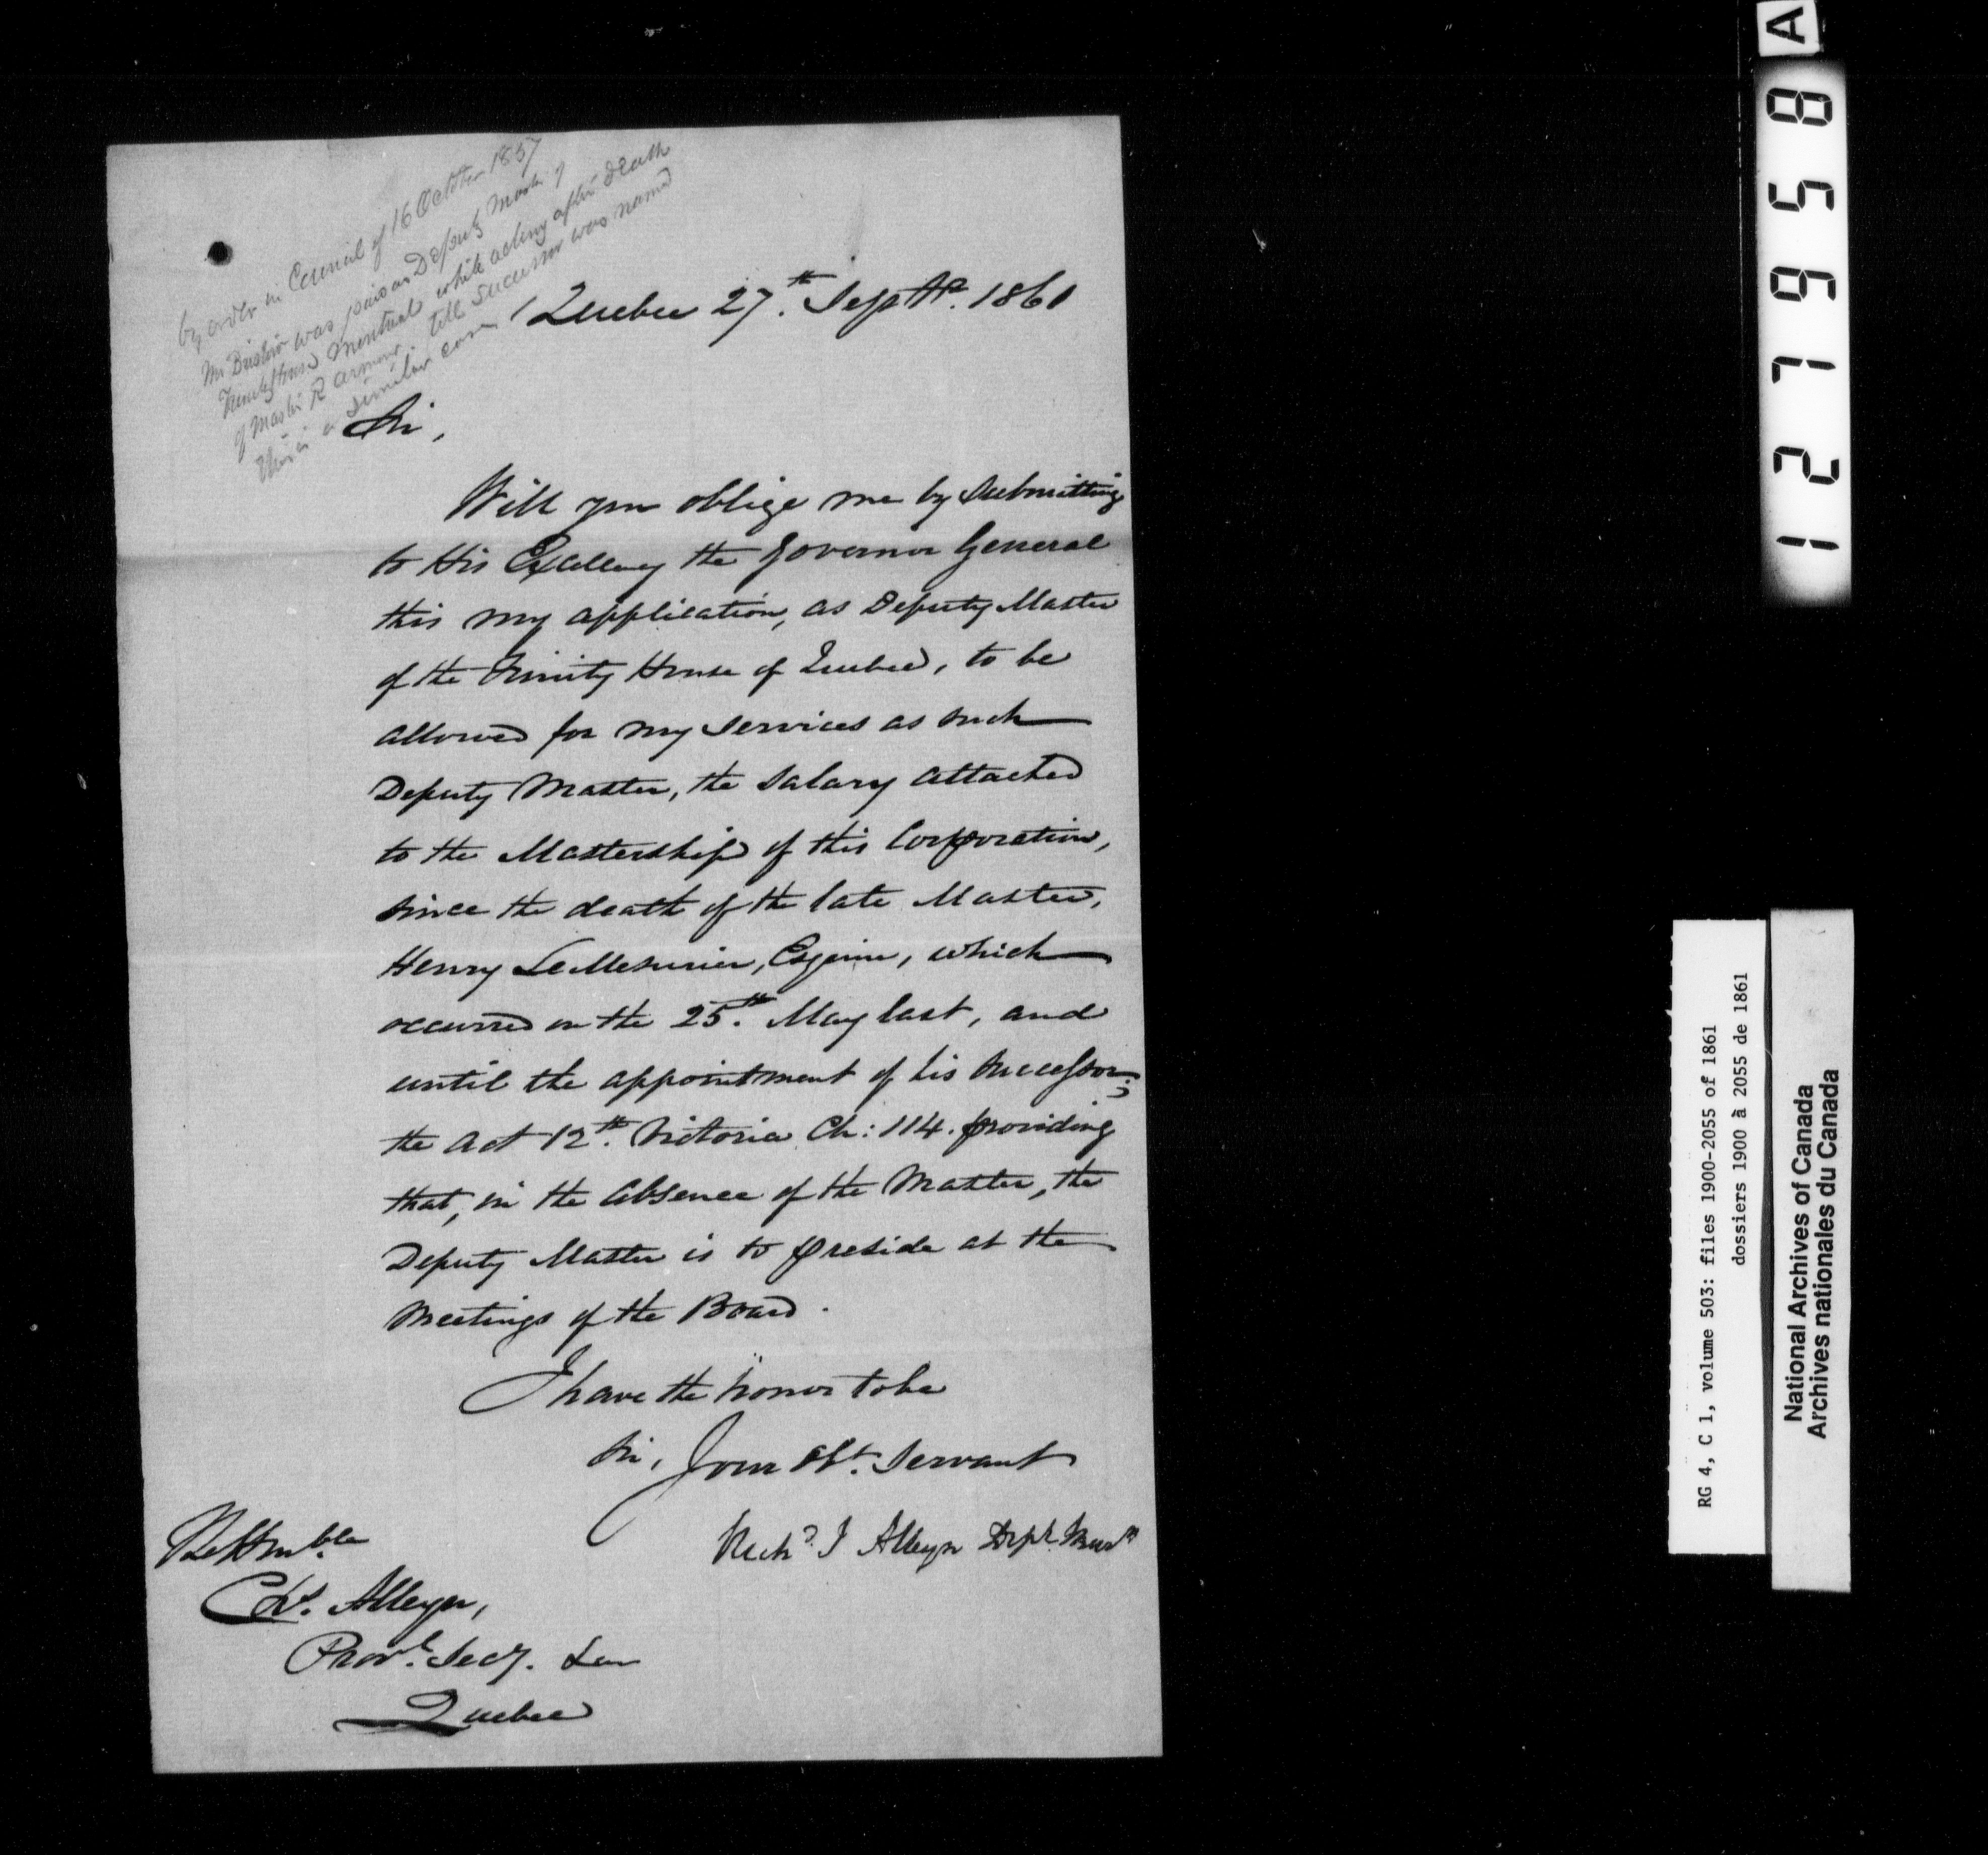 by order in Council of 16 October 1857
Mr Bristow was paid as Deputy Master of
Trinity House Montreal while acting after death
of Master R Armour till successor was named
this is a similar case
Quebec 27th. Septr. 1861
Sir,
Will you oblige me by submitting
to His Excellency the Governor General
this my application, as Deputy Master
of the Trinity House of Quebec, to be
allowed for my services as such
Deputy Master, the salary attached
to the Mastership of this Corporation,
since the death of the late Master,
Henry LeMesurier, Esquire, which
occurred on the 25th. May last, and
until the appointment of his successor;
the Act 12th. Victoria Ch: 114. providing
that, in the absence of the Master, the
Deputy Master is to preside at the
meetings of the Board.
I have the honor to be
Sir, Your Obt. Servant
Richd. I Alleyn Dept. Mastr
The Honble
Chs. Alleyn,
Provl. Secy.
Quebec
127958
A
RG 4, C 1, volume 503: files 1900-2055 of 1861
dossiers 1900 à 2055 de 1861
National Archives of Canada
Archives nationales du Canada